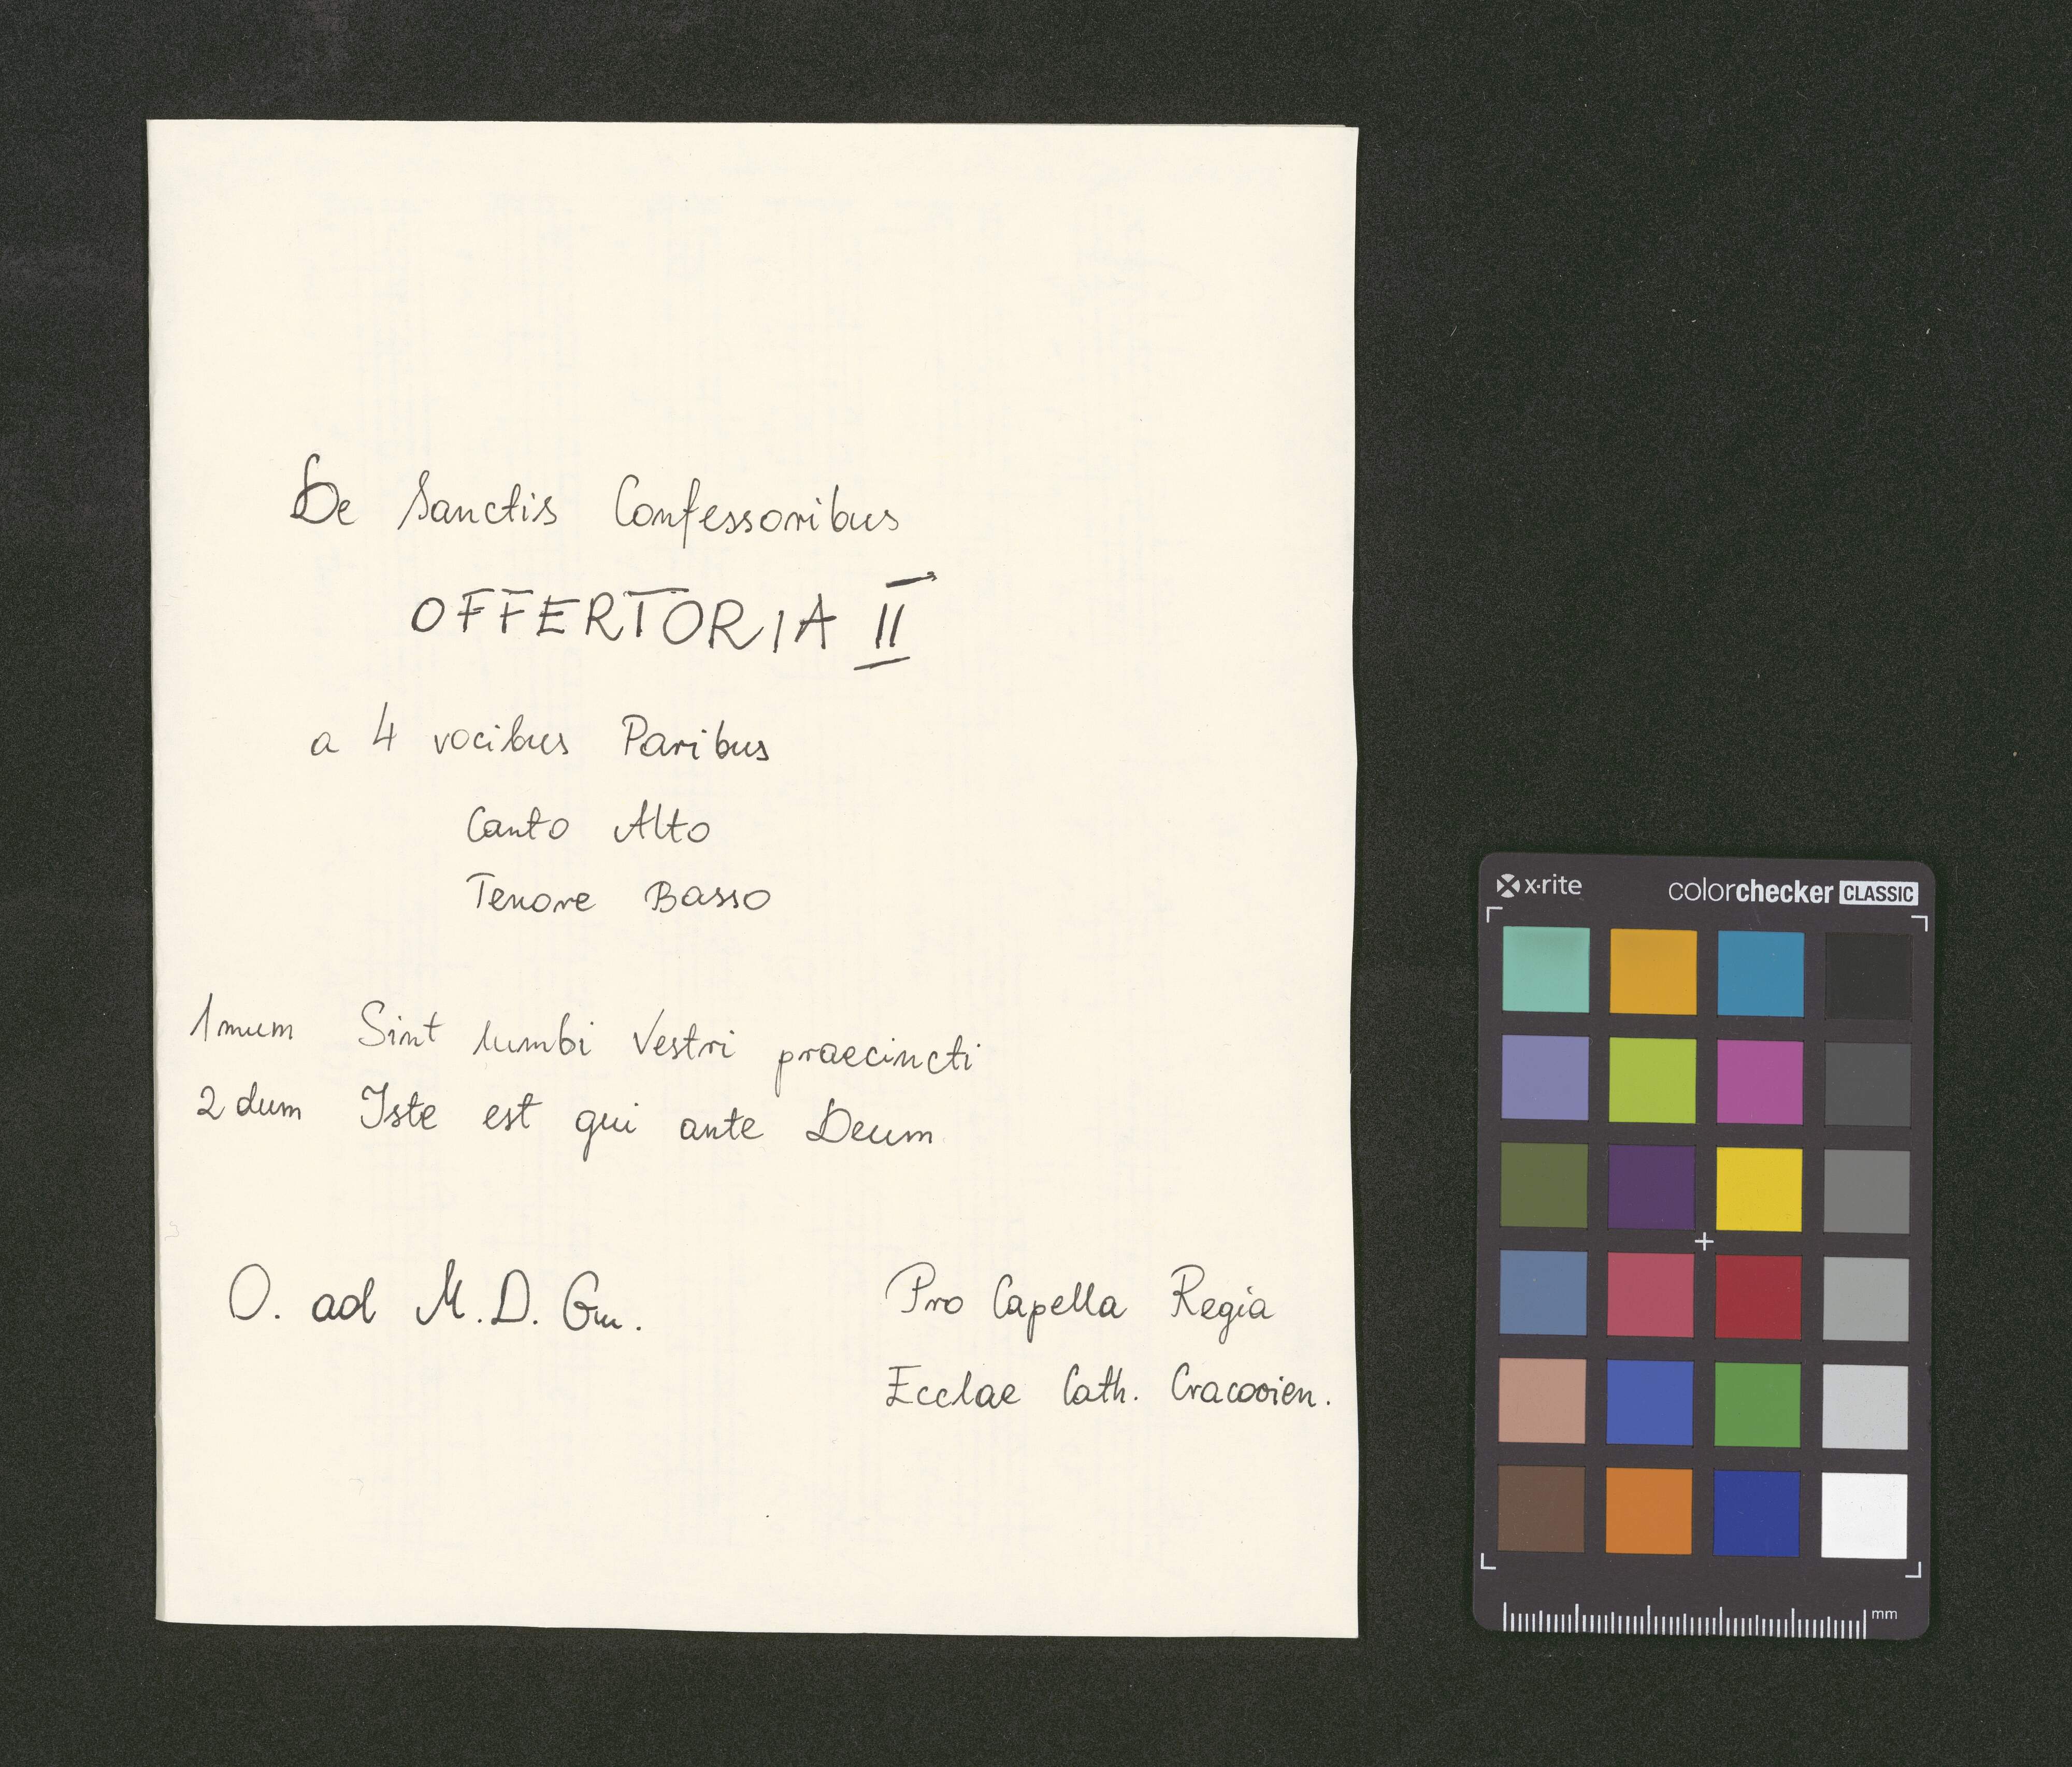 De Sanctis Confessoribus
OFFERTORIA II
a 4 vocibus Paribus
Canto Alto
Tenore Basso
1mum Sint lumbi Vestri praecincti
2dum Iste est qui ante Deum
O. ad M.D. Gm.
Pro Capella Regia
Ecclae Cath. Cracovien.
x·rite
colorchecker CLASSIC
mm